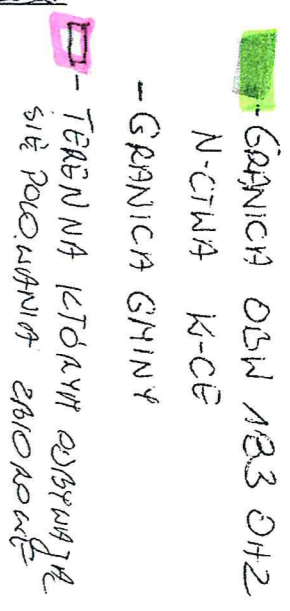 - GRANICA OBW 183 OHZ
N-CTWA K-CE
- GRANICA GMINY
- TEREN NA KTÓRYM ODBYWAJĄ
SIĘ POLOWANIA ZBIOROWE